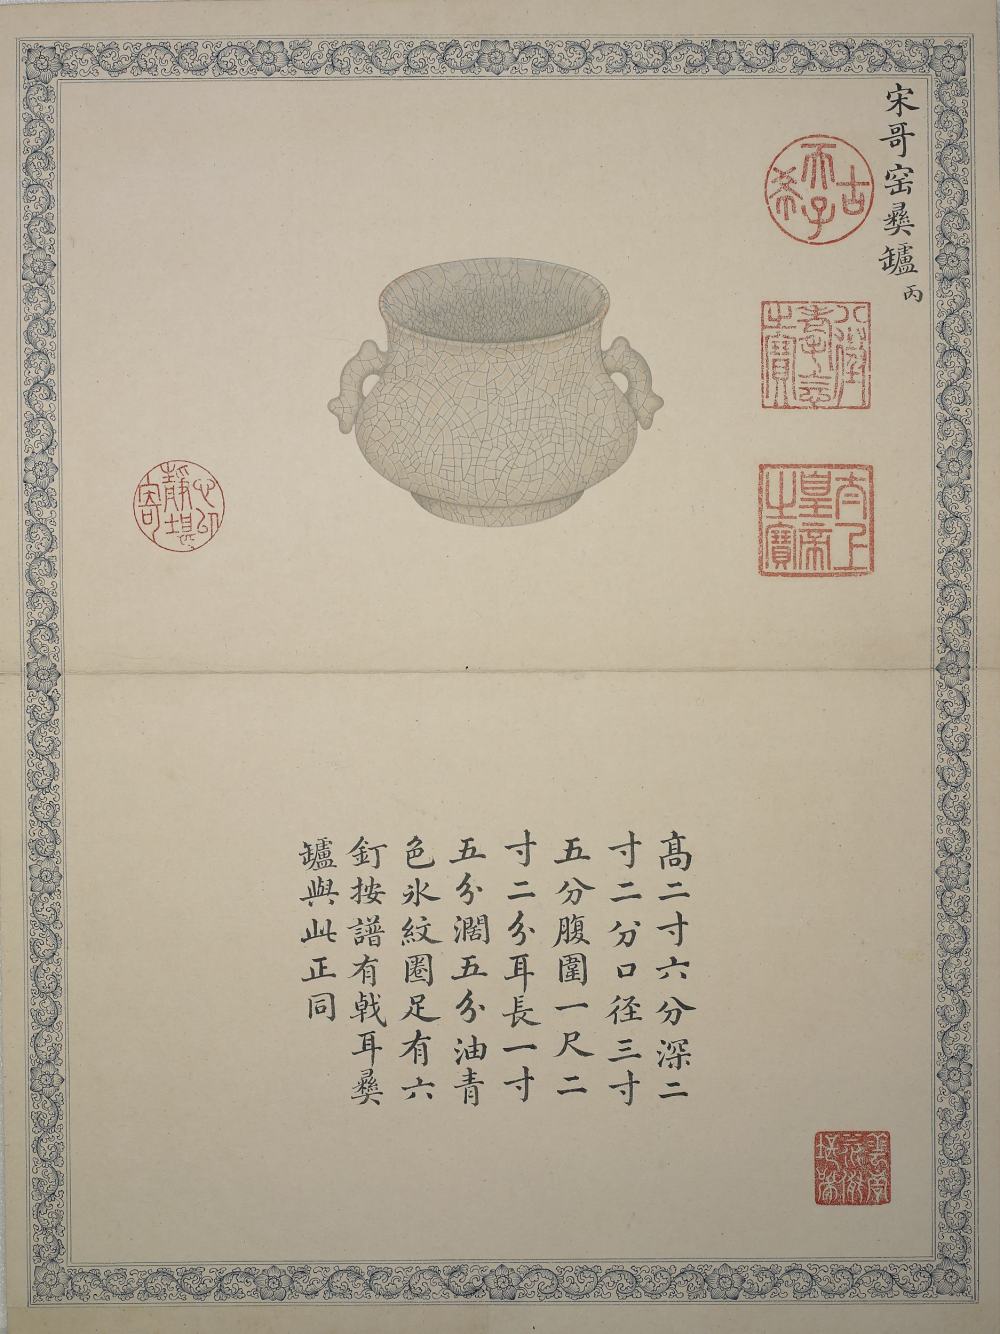 宋哥窑彝罏 丙
古
希天子
八徵
耄念
之寶
太上
皇帝
之寶
高二寸六分深二
寸二分口徑三寸
五分腹圍一尺二
寸二分耳長一寸
五分濶五分油青
色氷紋圈足有六
釘按譜有戟耳彝
罏與此正同
心印
靜堪
寄